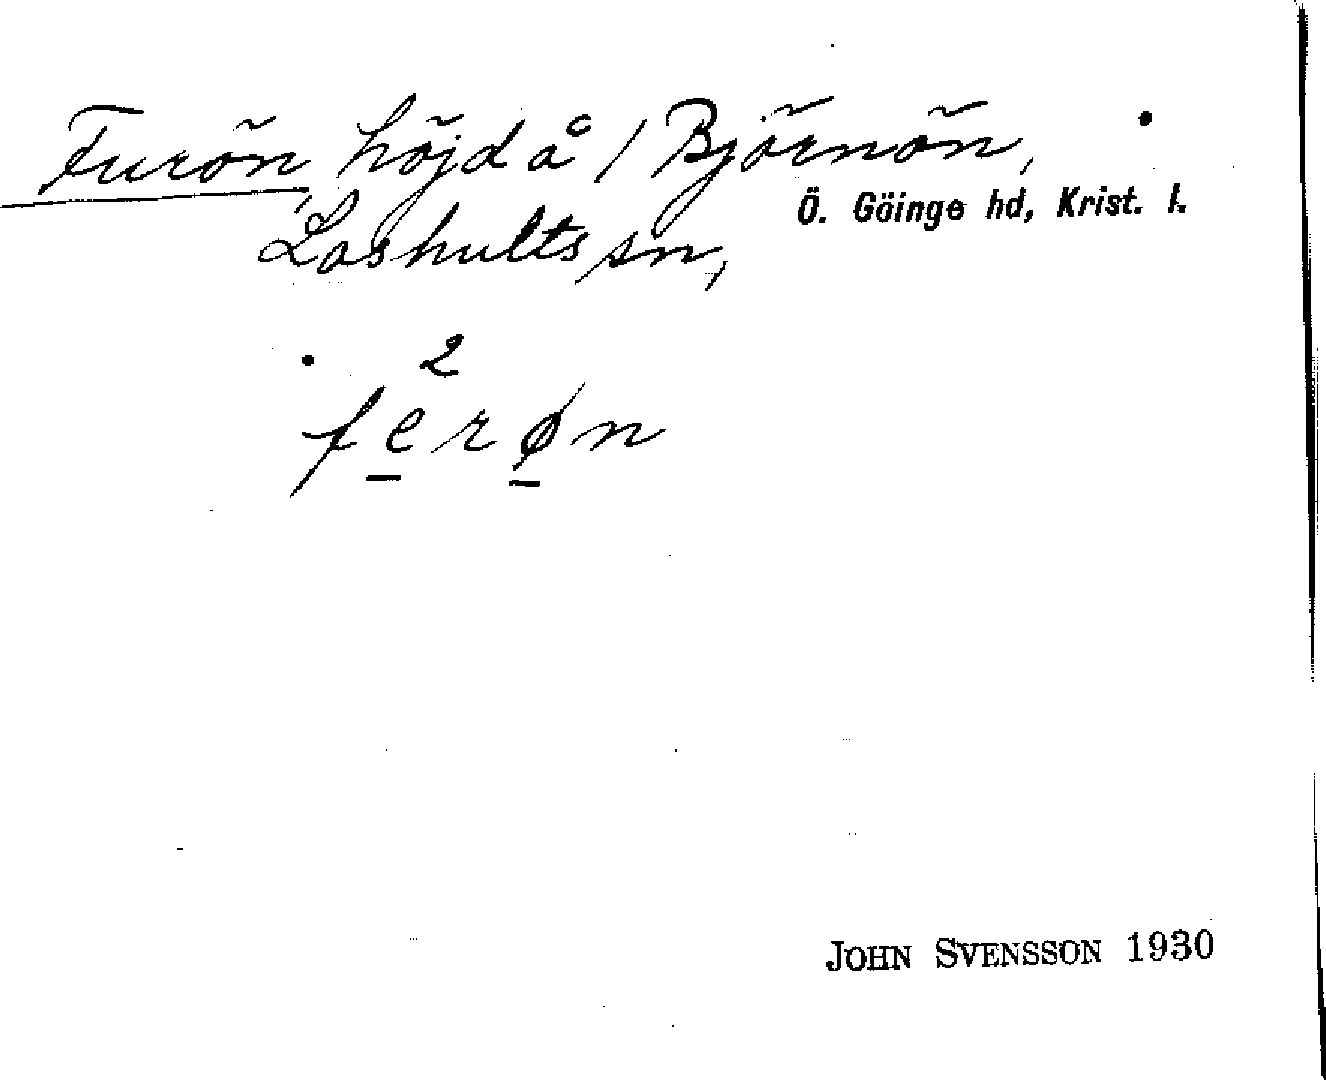 Furön, höjd å / Björnön,
Ö. Göinge hd, Krist. l.
Loshults sn,
2
ferøn
JOHN SVENSSON 1930